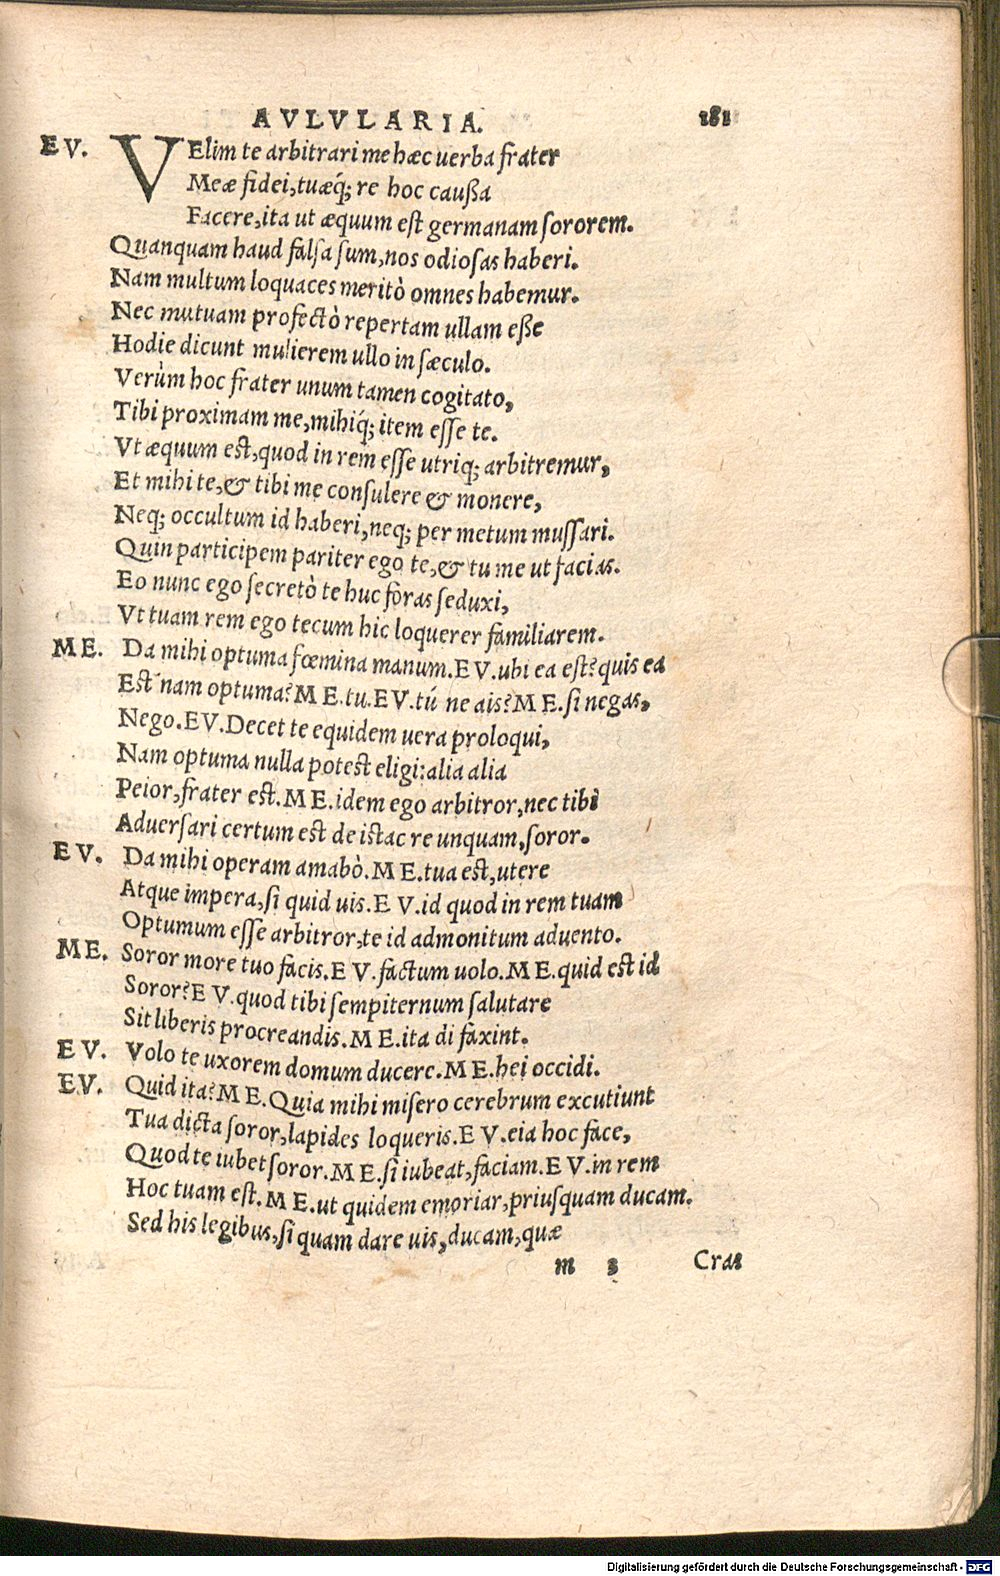 AVLVLARIA. 181
EV. VElim te arbitrari me hæc uerba frater
Meæ fidei, tuæq́; re hoc caußa
Facere, ita ut æquum est germanam sororem.
Quanquam haud falsa sum, nos odiosas haberi.
Nam multum loquaces meritò omnes habemur.
Nec mutuam profectò repertam ullam eße
Hodie dicunt mulierem ullo in sæculo.
Verùm hoc frater unum tamen cogitato,
Tibi proximam me, mihiq́; item esse te.
Vt æquum est, quod in rem esse utriq; arbitremur,
Et mihi te, & tibi me consulere & monere,
Neq; occultum id haberi, neq; per metum mussari.
Quin participem pariter ego te, & tu me ut facias.
Eo nunc ego secretò te huc foras seduxi,
Vt tuam rem ego tecum hic loquerer familiarem.
ME. Da mihi optuma fœmina manum. EV. ubi ea est? quis ea
Est nam optuma? ME. tu. EV. tú ne ais? ME. si negas,
Nego. EV. Decet te equidem uera proloqui,
Nam optuma nulla potest eligi: alia alia
Peior, frater est. ME. idem ego arbitror, nec tibi
Aduersari certum est de istac re unquam, soror.
EV. Da mihi operam amabò. ME. tua est, utere
Atque impera, si quid uis. EV. id quod in rem tuam
Optumum esse arbitror, te id admonitum aduento.
ME. Soror more tuo facis. EV. factum uolo. ME. quid est id
Soror? EV. quod tibi sempiternum salutare
Sit liberis procreandis. ME. ita di faxint.
EV. Volo te uxorem domum ducere. ME. hei occidi.
EV. Quid ita? ME. Quia mihi misero cerebrum excutiunt
Tua dicta soror, lapides loqueris. EV. eia hoc face,
Quod te iubet soror. ME. si iubeat, faciam. EV. in rem
Hoc tuam est. ME. ut quidem emoriar, priusquam ducam.
Sed his legibus, si quam dare uis, ducam, quæ
m 3 Cras
Digitalisierung gefördert durch die Deutsche Forschungsgemeinschaft - DFG